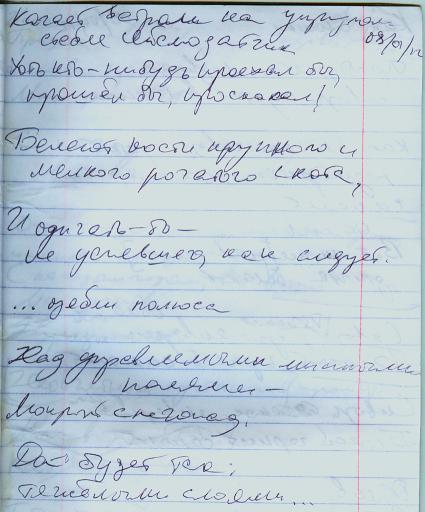 Качает ветрами на упругом
стебле сейсмодатчик
09/01/12
Хоть кто-нибудь проехал бы,
прошёл бы, проскакал!
Белеют кости крупного и
мелкого рогатого скота,
И одичать-то —
не успевшего, как следует.
... озябли полюса
Над древлемыми минными
полями —
Мокрый снегопад.
Да будет так:
тяжёлыми слоями...